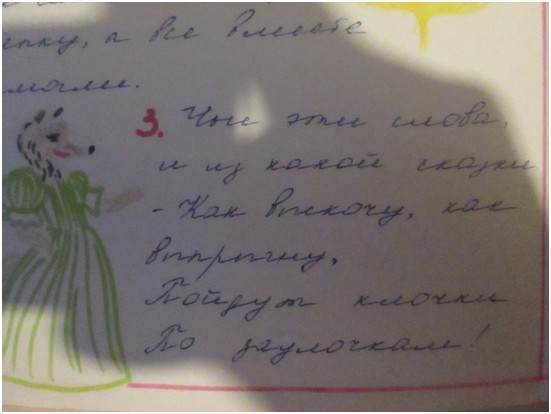 епку, а все вместе
мали.
3. Чьи эти слова,
и из какой сказки
- Как выскочу, как
выпрыгну,
Пойдут клочки
По заулочкам!